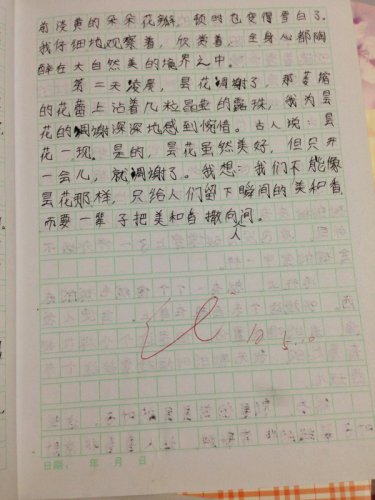 前淡黄的朵朵花瓣，顿时也变得雪白了。
我仔细地观察着，欣赏着，全身心都陶
醉在大自然美的境界之中。
第二天凌晨，昙花凋谢了，那萎缩
的花蕾上沾着几粒晶莹的露珠，我为昙
花的凋谢深深地感到惋惜。古人说：昙
花一现。是的，昙花虽然美好，但只开
一会儿，就凋谢了。我想：我们不能像
昙花那样，只给人们留下瞬间的美和香
而要一辈子把美和香撒向人间。
日期： 年 月 日